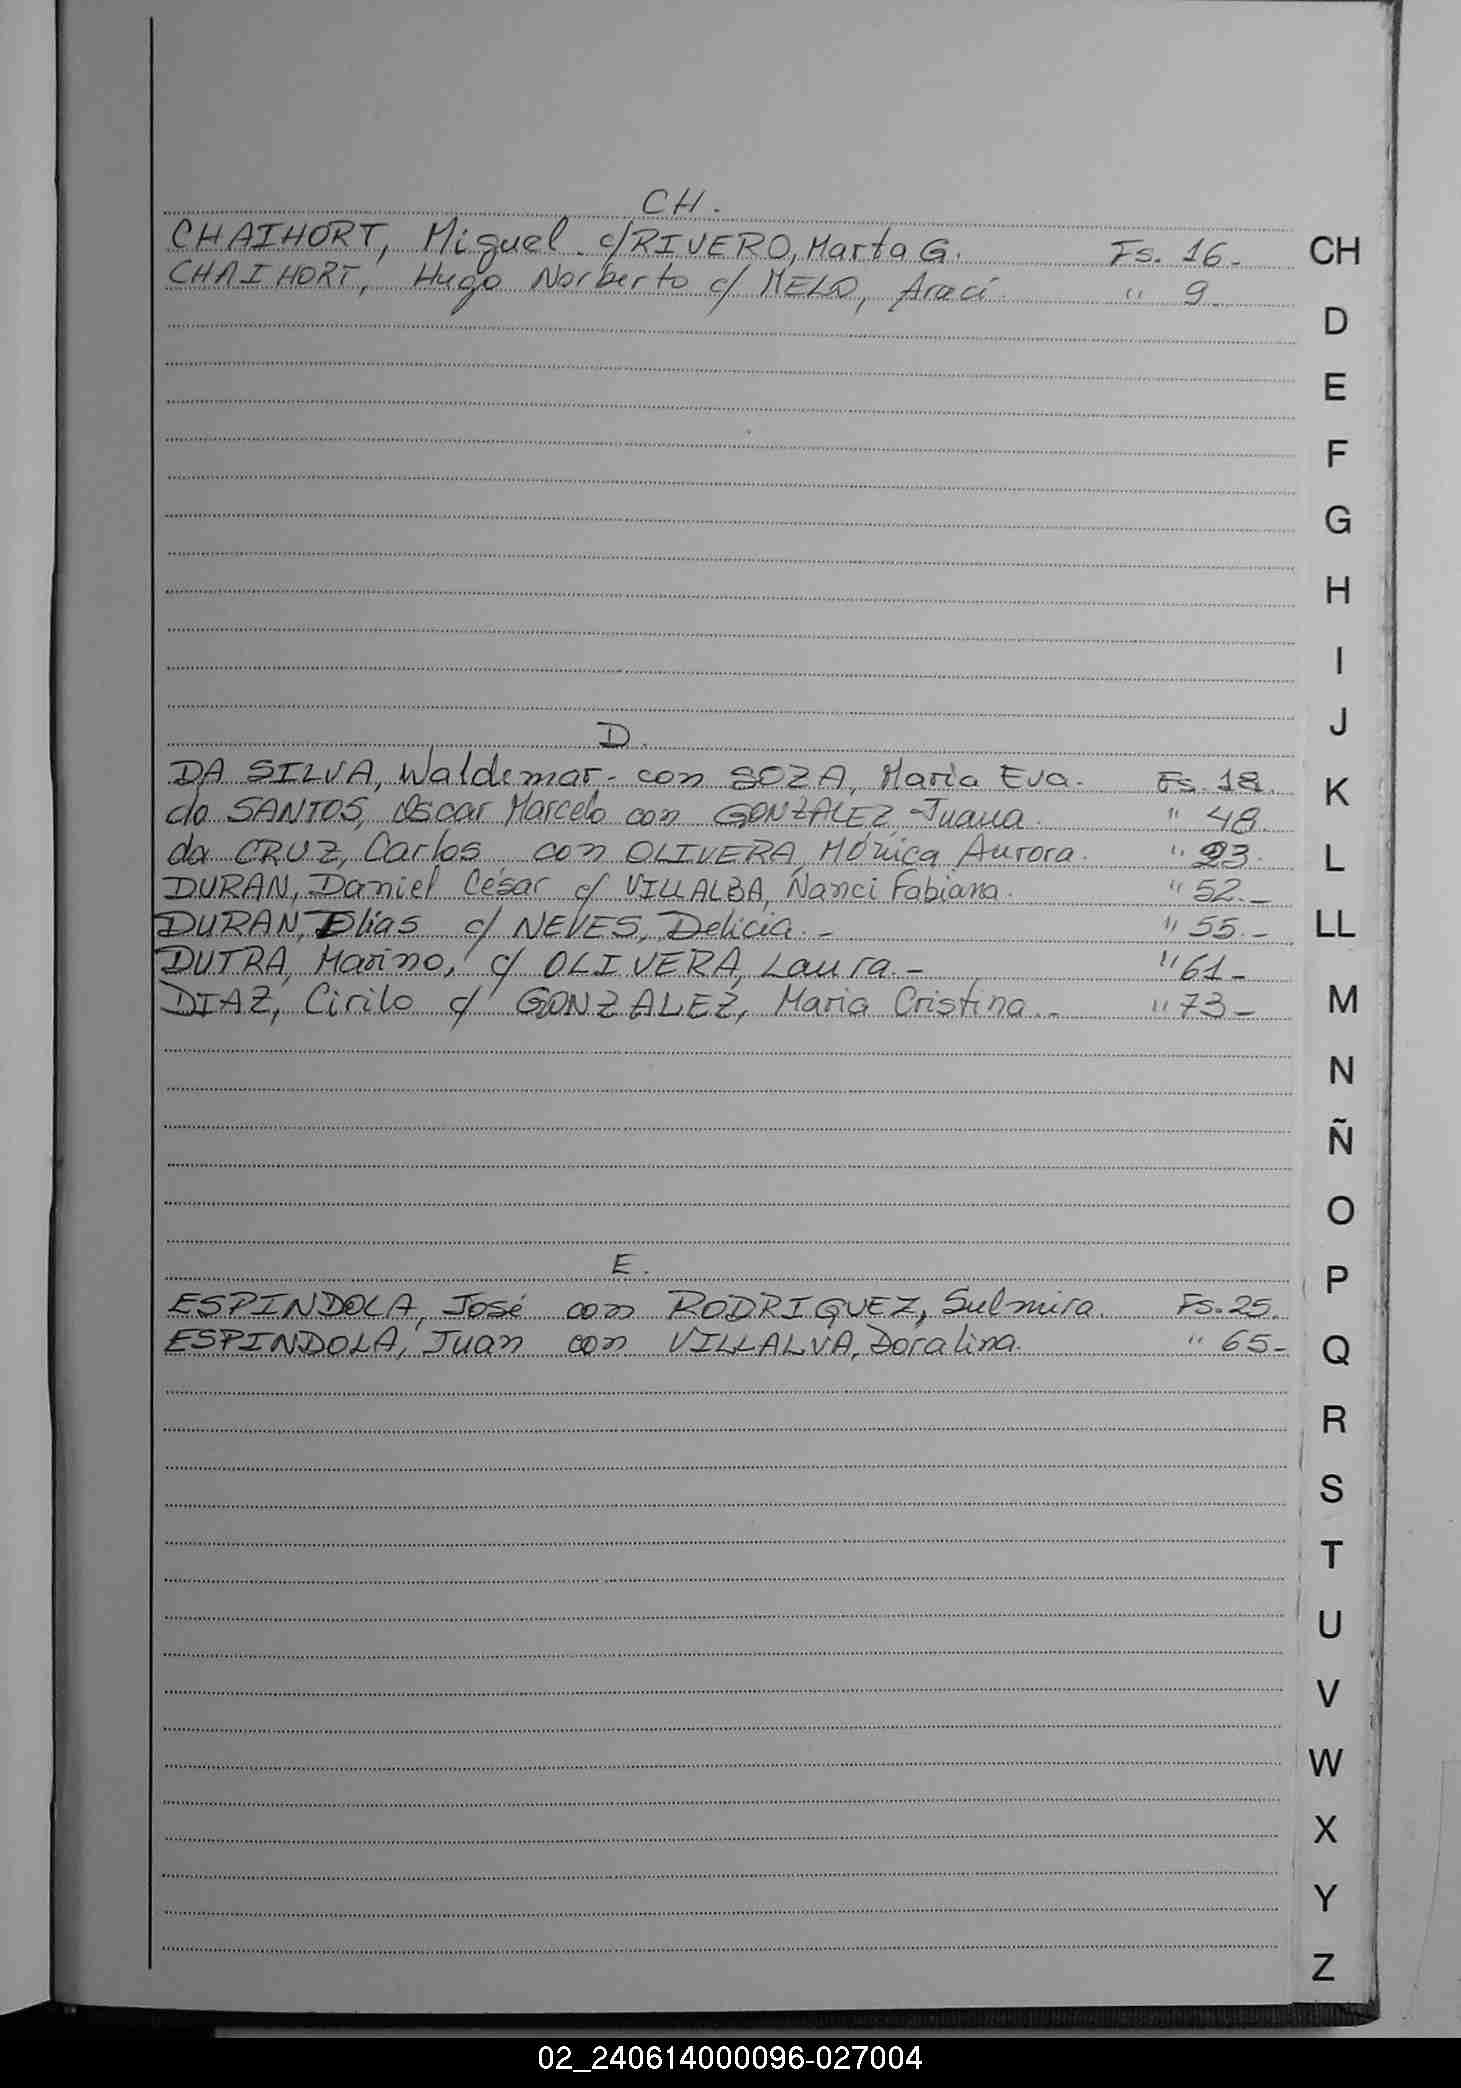 CH.
CHAIHORT, Miguel. c/RIVERO, Marta G. Fs. 16.-
CHAIHORT, Hugo Norberto c/ MELO, Araci " 9.
D.
DA SILVA, Waldemar.- con SOZA, Maria Eva. Fs. 18.
do SANTOS, Oscar Marcelo con GONZALEZ, Juana. " 48.
da CRUZ, Carlos con OLIVERA, Mónica Aurora. " 23.
DURAN, Daniel César c/ VILLALBA, Nanci Fabiana. " 52.-
DURAN, Elias c/ NEVES, Delicia.- " 55.-
DUTRA, Marino, c/ OLIVERA, Laura.- " 61-
DIAZ, Cirilo c/ GONZALEZ, Maria Cristina.- " 73-
E.
ESPINDOLA, José con RODRIGUEZ, Sulmira. Fs. 25.
ESPINDOLA, Juan con VILLALVA, Doralina. " 65-
CH
D
E
F
G
H
I
J
K
L
LL
M
N
Ñ
O
P
Q
R
S
T
U
V
W
X
Y
Z
02_240614000096-027004